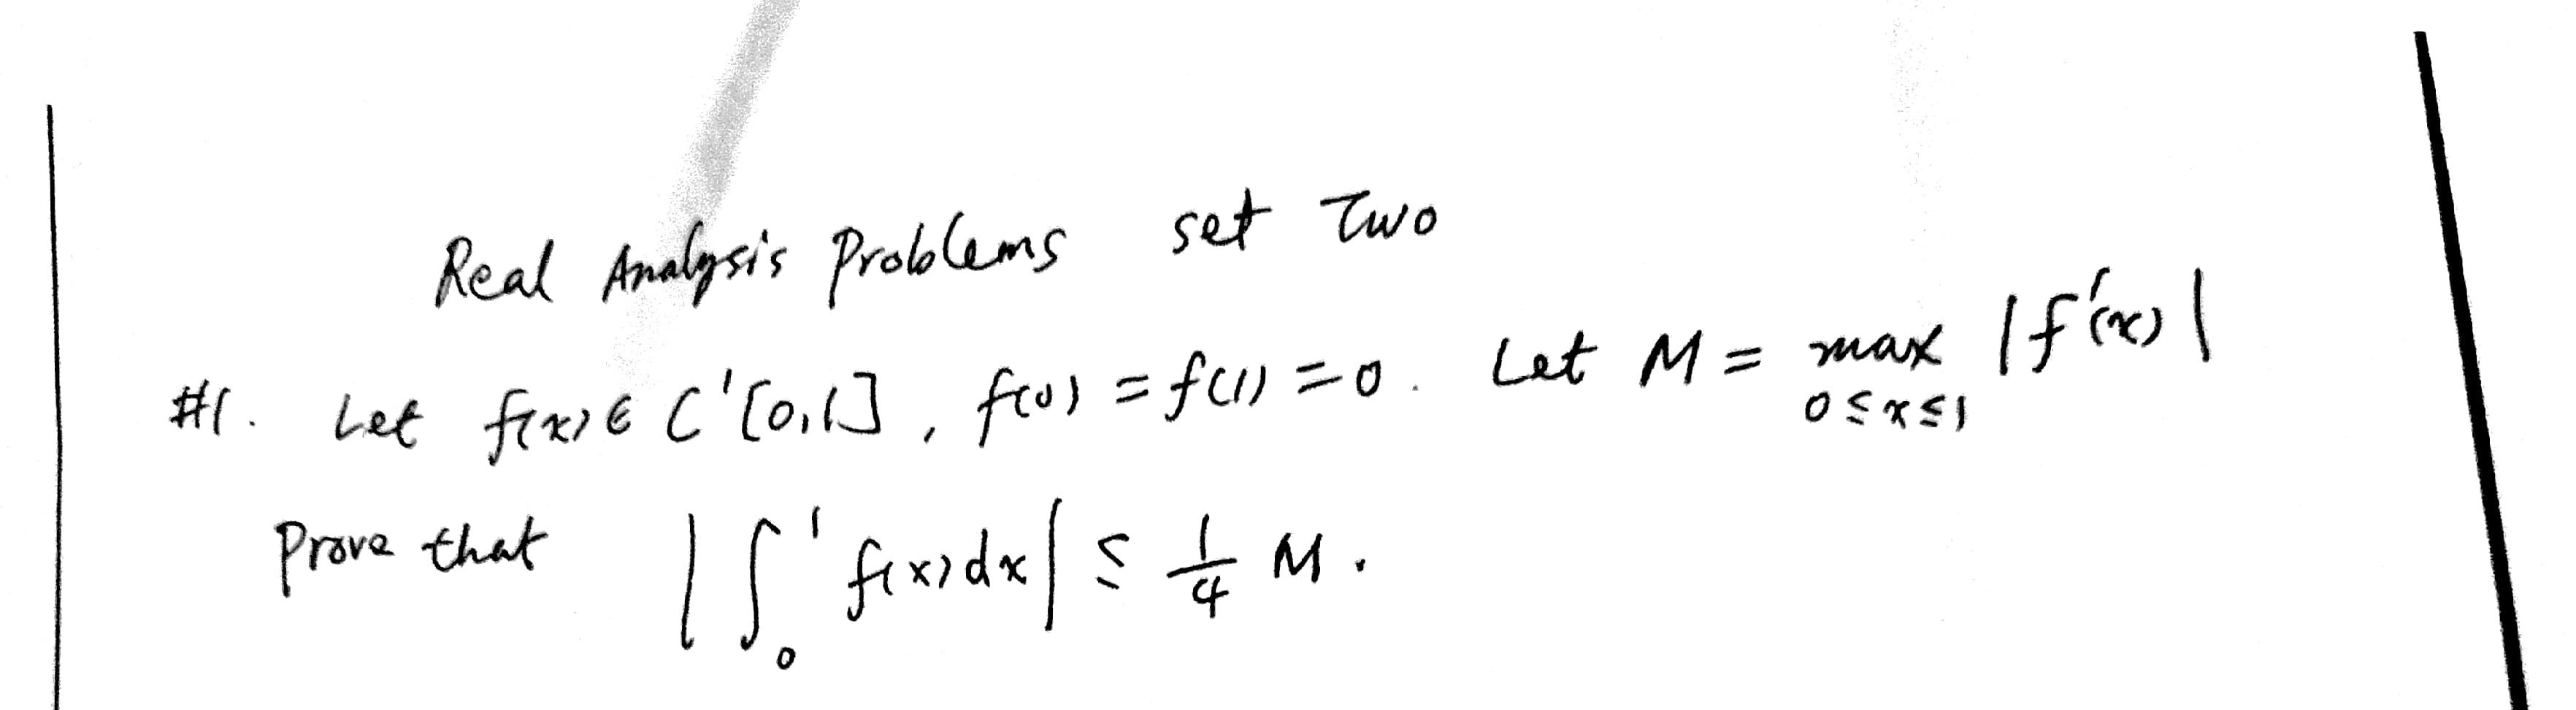 Real Analysis Problems set Two
#1. Let f(x) ∈ C'[0,1], f(0) = f(1) = 0. Let M = max |f'(x)|
0 ≤ x ≤ 1
Prove that |∫₀¹ f(x)dx| ≤ 1/4 M.